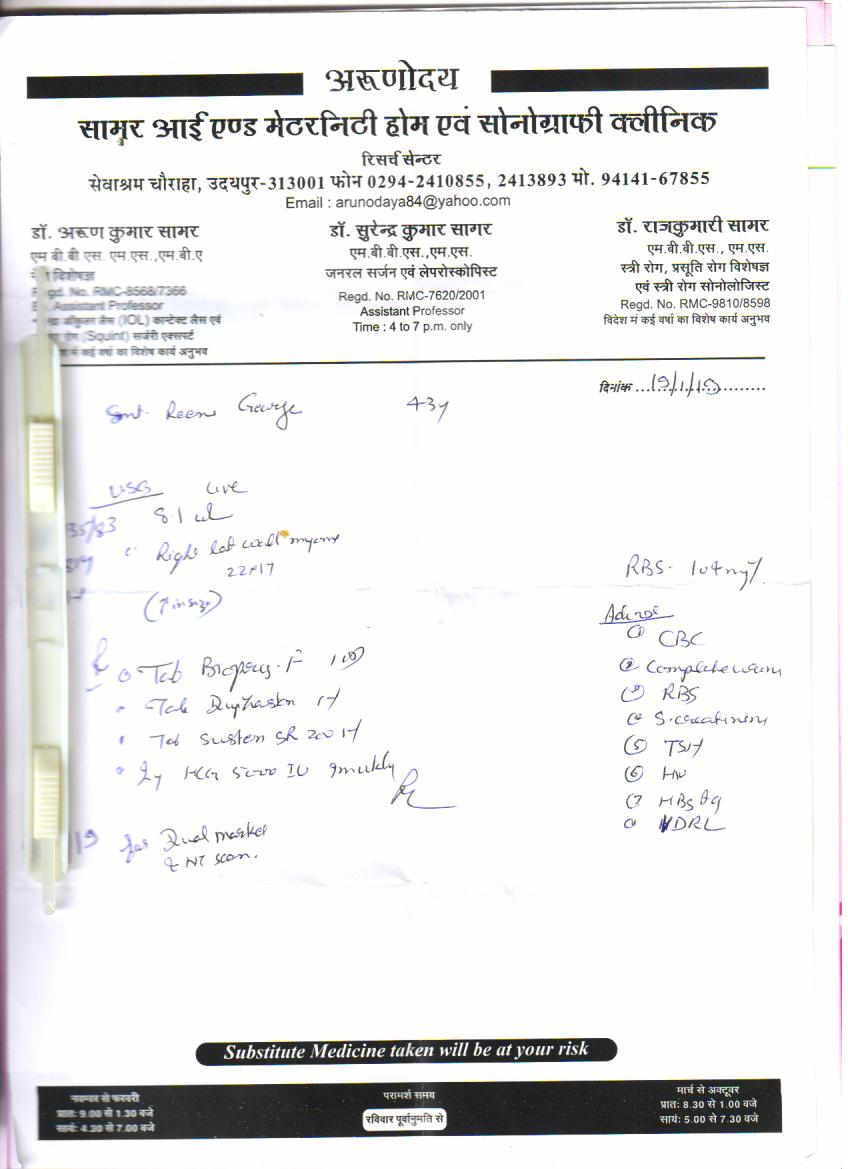 अरूणोदय
सामर आई एण्ड मेटरनिटी होम एवं सोनोग्राफी क्लीनिक
रिसर्च सेन्टर
सेवाश्रम चौराहा, उदयपुर-313001 फोन 0294-2410855, 2413893 मो. 94141-67855
Email : arunodaya84@yahoo.com
डॉ. अरूण कुमार सामर
एम बी बी एस. एम.एस.,एम.बी.ए
विशेषज्ञ
Regd. No. RMC-8568/7366
Assistant Professor
लैंस (IOL) कान्टेक्ट लैंस एवं
रोग (Squint) सर्जरी एक्सपर्ट
में कई वर्षों का विशेष कार्य अनुभव
डॉ. सुरेन्द्र कुमार सागर
एम.बी.बी.एस.,एम.एस.
जनरल सर्जन एवं लेपरोस्कोपिस्ट
Regd. No. RMC-7620/2001
Assistant Professor
Time : 4 to 7 p.m. only
डॉ. राजकुमारी सामर
एम.बी.बी.एस., एम.एस.
स्त्री रोग, प्रसूति रोग विशेषज्ञ
एवं स्त्री रोग सोनोलोजिस्ट
Regd. No. RMC-9810/8598
विदेश मं कई वर्षा का विशेष कार्य अनुभव
दिनांक 19/1/19
Smt. Reena George 43y
USG Live
8.1
Right lat wall myoma
22×17
(↑ in size)
RBS- 104mg%
Advise
① CBC
② Complete urine
③ RBS
④ S.creatinine
⑤ TSH
⑥ HIV
⑦ HBsAg
VDRL
Tab F
Tab Duphaston
Tab Susten SR 200
Inj HCG 5000 IU
for Dual marker
& NT scan.
Substitute Medicine taken will be at your risk
नवम्बर से फरवरी
प्रातः 9.00 से 1.30 बजे
सायंः 4.30 से 7.00 बजे
परामर्श समय
रविवार पूर्वानुमति से
मार्च से अक्टूवर
प्रातः 8.30 से 1.00 बजे
सायंः 5.00 से 7.30 बजे